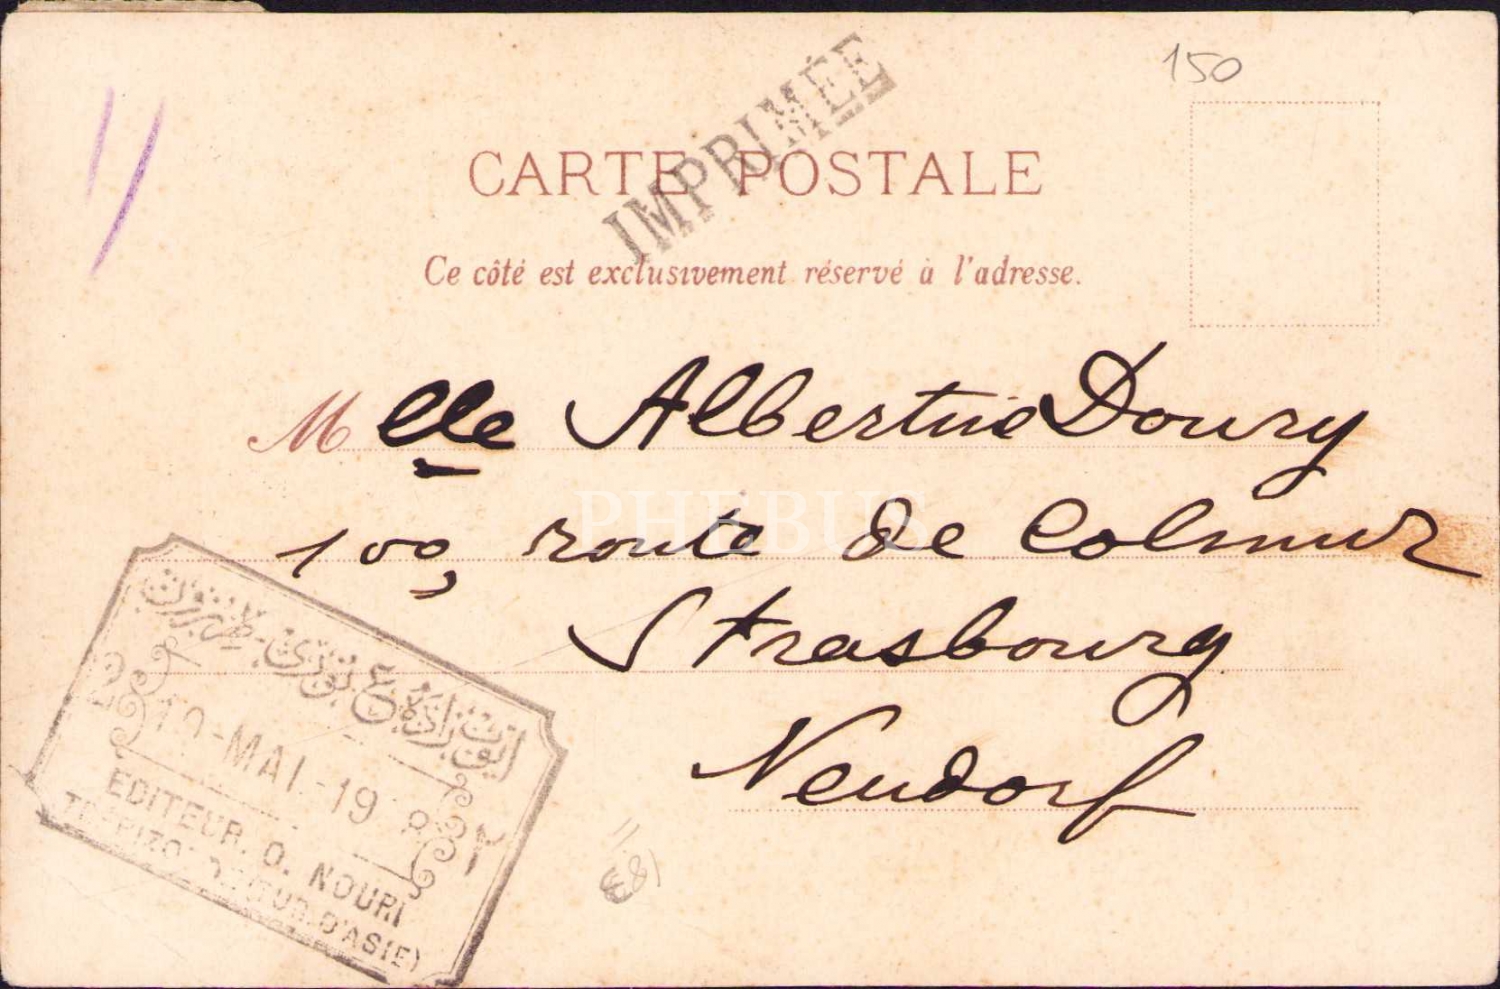 150
IMPRIMÉE
CARTE POSTALE
Ce côté est exclusivement réservé à l'adresse.
Mlle Albertine Doury
100, route de Colmar
Strasbourg
Neudorf
PHEBUS
ایوب زاده ع نوری - طرابزون
10-MAI-19 8
EDITEUR. O. NOURI
D'ASIE)